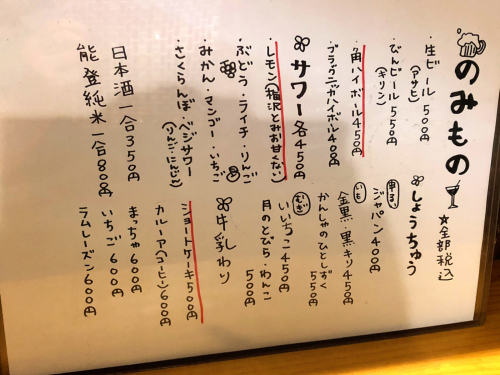 のみもの
☆全部税込
・生ビール 500円
(アサヒ)
・びんビール 550円
(キリン)
・角ハイボール 450円
・ブラックニッカハイボール 400円
サワー 各450円
・レモン(梅沢とみお甘くない)
・ぶどう・ライチ・りんご
・みかん・マンゴー・いちご
・さくらんぼ・ベジサワー
(りんご・にんじん)
日本酒一合 350円
能登純米一合 800円
しょうちゅう
ジャパン 400円
いも
金黒・黒キリ 450円
かんしゃのひとしずく
550円
むぎ
いいちこ 450円
月のとびら・わんこ
500円
牛乳わり
ショートケーキ 500円
カルーア(コーヒー) 600円
まっちゃ 600円
いちご 600円
ラムレーズン 600円